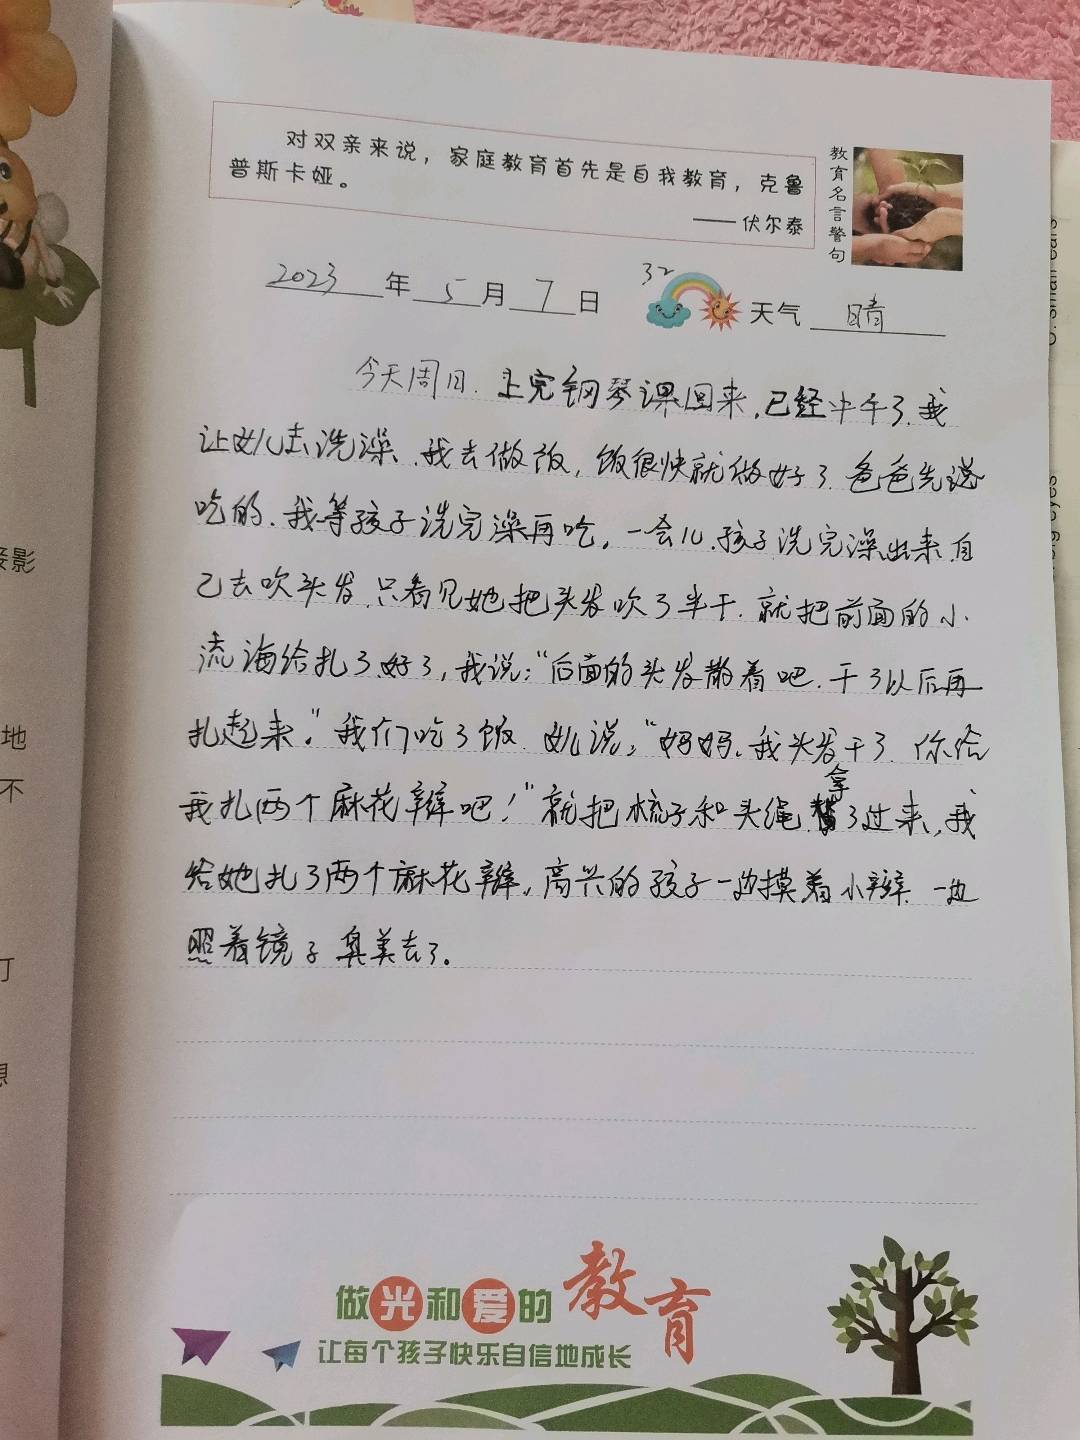 对双亲来说，家庭教育首先是自我教育，克鲁
普斯卡娅。
——伏尔泰
教育名言警句
2023年5月7日 32 天气 晴
今天周日.上完钢琴课回来,已经中午了.我
让女儿去洗澡.我去做饭,饭很快就做好了.爸爸先说
吃的.我等孩子洗完澡再吃。一会儿.孩子洗完澡出来.自
己去吹头发.只看见她把头发吹了半干.就把前面的小
流海给扎了好了,我说:“后面的头发散着吧.干了以后再
扎起来”。我们吃了饭.女儿说:“妈妈.我头发干了.你给
我扎两个麻花辫吧！”就把梳子和头绳拿了过来,我
给她扎了两个麻花辫,高兴的孩子一边摸着小辫.一边
照着镜子臭美去了。
做光和爱的教育
让每个孩子快乐自信地成长
接影
地
不
打
想